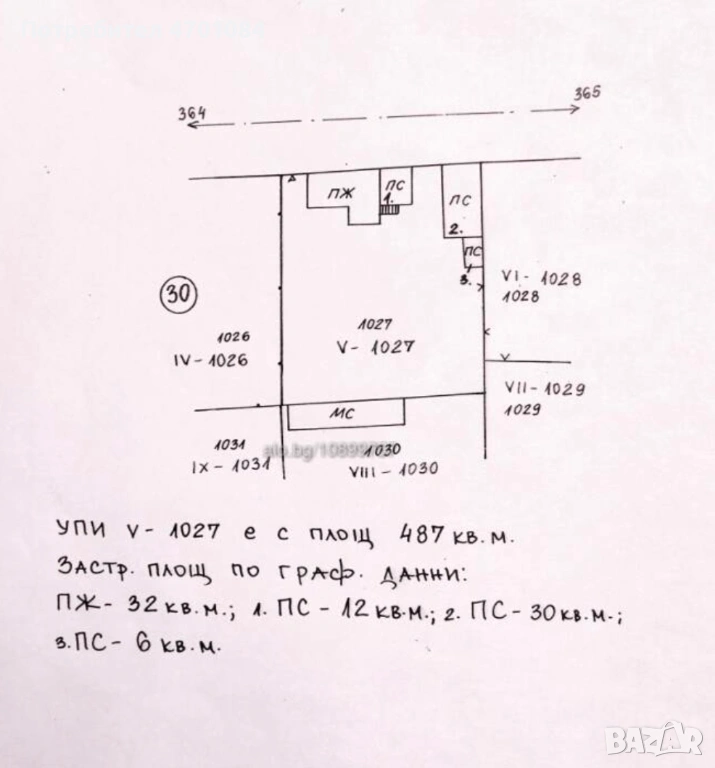 364
365
ПЖ
ПС
1.
ПС
2.
ПС
3.
30
VI - 1028
1028
1027
V - 1027
1026
IV - 1026
VII - 1029
1029
МС
1031
IX - 1031
1030
VIII - 1030
УПИ V - 1027 е с площ 487 кв.м.
Застр. площ по граф. данни:
ПЖ - 32 кв.м.; 1. ПС - 12 кв.м.; 2. ПС - 30 кв.м.;
3. ПС - 6 кв.м.
BAZAR